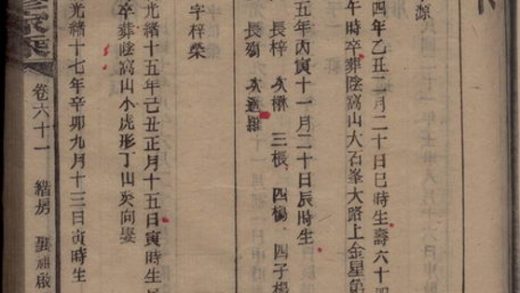 源
四年乙丑二月二十日巳時生壽六十四
午時卒葬陰窩山大石峯大路上金星
五年丙寅十一月二十日辰時生
長梓 次楙 三棖 四楊 四子楊
長殤 次適羅
字梓榮
光緒十五年己丑正月十五日寅時生
卒葬陰窩山小虎形丁山癸向娶
光緒十七年辛卯九月十三日寅時生
卷六十一